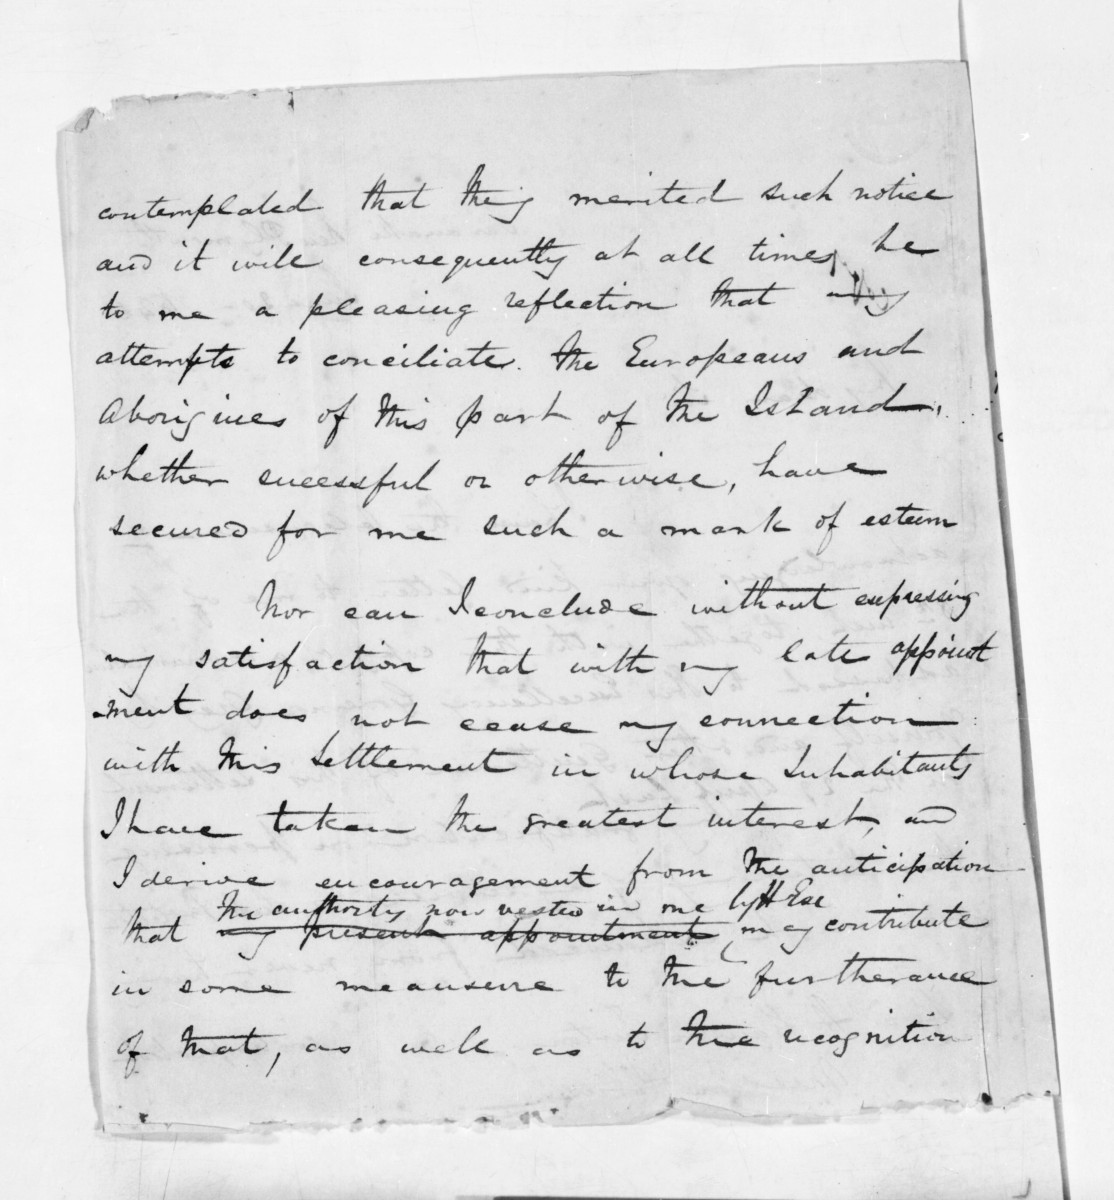 contemplated that they merited such notice
and it will consequently at all times, be
to me a pleasing reflection that my
attempts to conciliate the Europeans and
Aborigines of this part of the Island,
whether sucessful or otherwise, have
secured for me such a mark of esteem
Nor can I conclude without expressing
my satisfaction that with my late appoint
-ment does not cease my connection
with this Settlement in whose Inhabitants
I have taken the greatest interest, and
I derive encouragement from the anticipation
the authority now vested in me by H Exc
that my present appointment may contribute
in some meausure to the furtherance
of that, as well as to the recognition